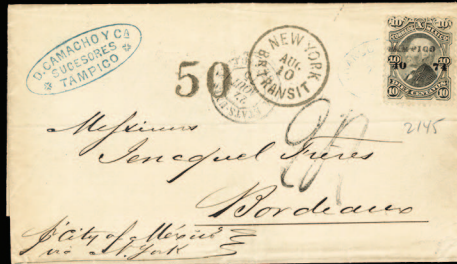 D. CAMACHO Y Cª
SUCESORES
TAMPICO
50
NEW YORK
AUG
10
BR. TRANSIT
10 10
TAMPICO
10 74
10 10
DIEZ CENTAVOS
2145
Messieurs
Jencquel Frères
Bordeaux
pr City of México
via N. York